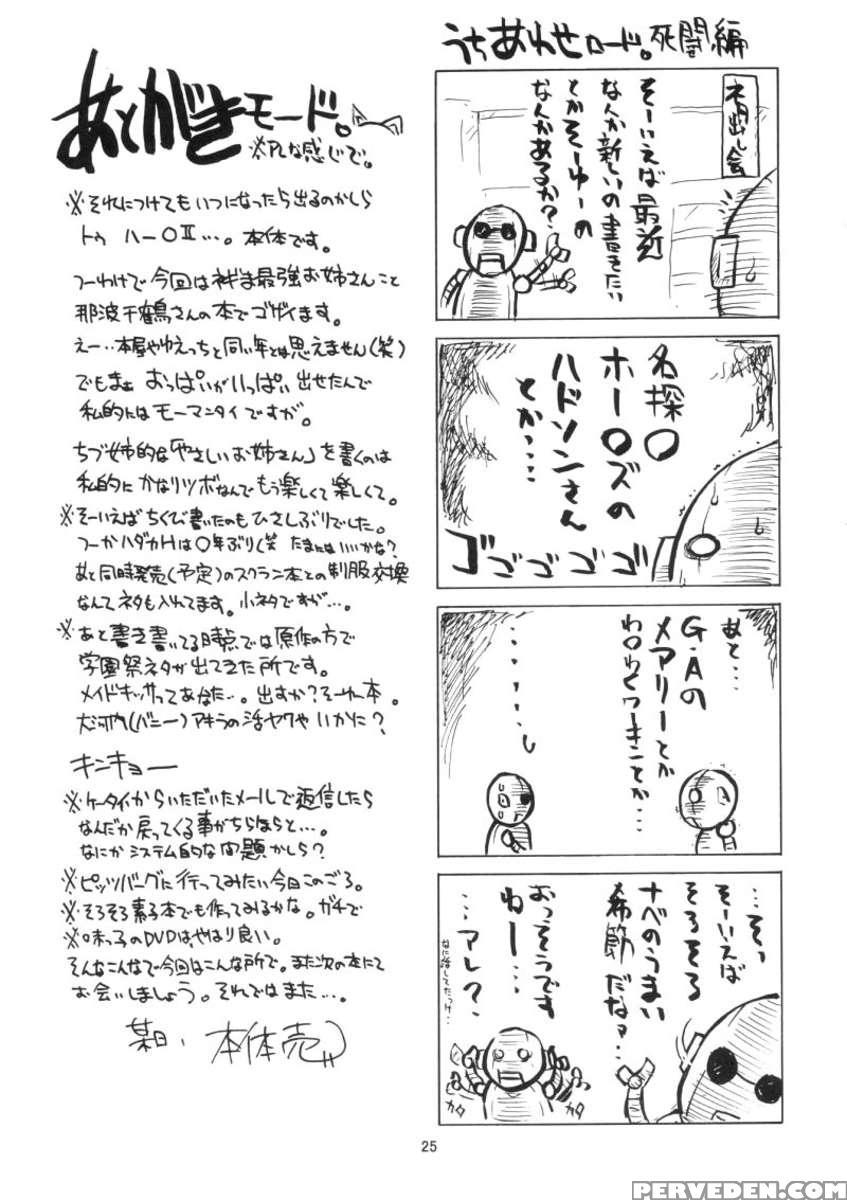 うちあわせロード。死闘編
ネタ出し会
そーいえば最近
なんか新しいの書きたい
とかそーゆーの
なんかあるか?
名探〇
ホー〇ズの
ハドソンさん
とか‥‥
ゴゴゴゴゴ
あと‥‥
G・Aの
メアリーとか
‥‥‥‥‥
‥‥そっ
そーいえば
そろそろ
ナベのうまい
季節だなァ‥‥
おっそうです
ねー‥‥
‥‥アレ?
なに話してたっけ‥
カタ
カタ
あとがきモード。
※PLな感じで。
※それにつけてもいつになったら出るのかしら
トゥ ハー〇Ⅱ…。本体です。
つーわけで今回はネギま最強お姉さんこと
那波千鶴さんの本でゴザイます。
えー‥本屋やゆえっちと同い年とは思えません(笑)
でもまぁ おっぱいがいっぱい出せたんで
私的にはモーマンタイですが。
ちづ姉的な「やさしいお姉さん」を書くのは
私的にかなりツボなんでもう楽しくて楽しくて。
※そーいえばちくび書いたのもひさしぶりでした。
つーかハダカHは〇年ぶり(笑 たまにはいいかな?
あと同時発売(予定)のスクラン本との制服交換
なんてネタも入れてます。小ネタですが…。
※あと書き書いてる時点では原作の方で
学園祭ネタが出てきた所です。
メイドキッサってあなた‥。出すか?そーゆー本。
大河内(バニー)アキラの活ヤクやいかに?
キンキョー
※ケータイからいただいたメールで返信したら
なんだか戻ってくる事がちらほらと…。
なにかシステム的な問題かしら?
※ピッツバーグに行ってみたい今日このごろ。
※そろそろ素子本でも作ってみるかな。ガチで
※味っ子のDVDはやはり良い。
そんなこんなで今回はこんな所で。また次の本にて
お会いしましょう。それではまた…。
某日、本体売
25
PERVEDEN.COM